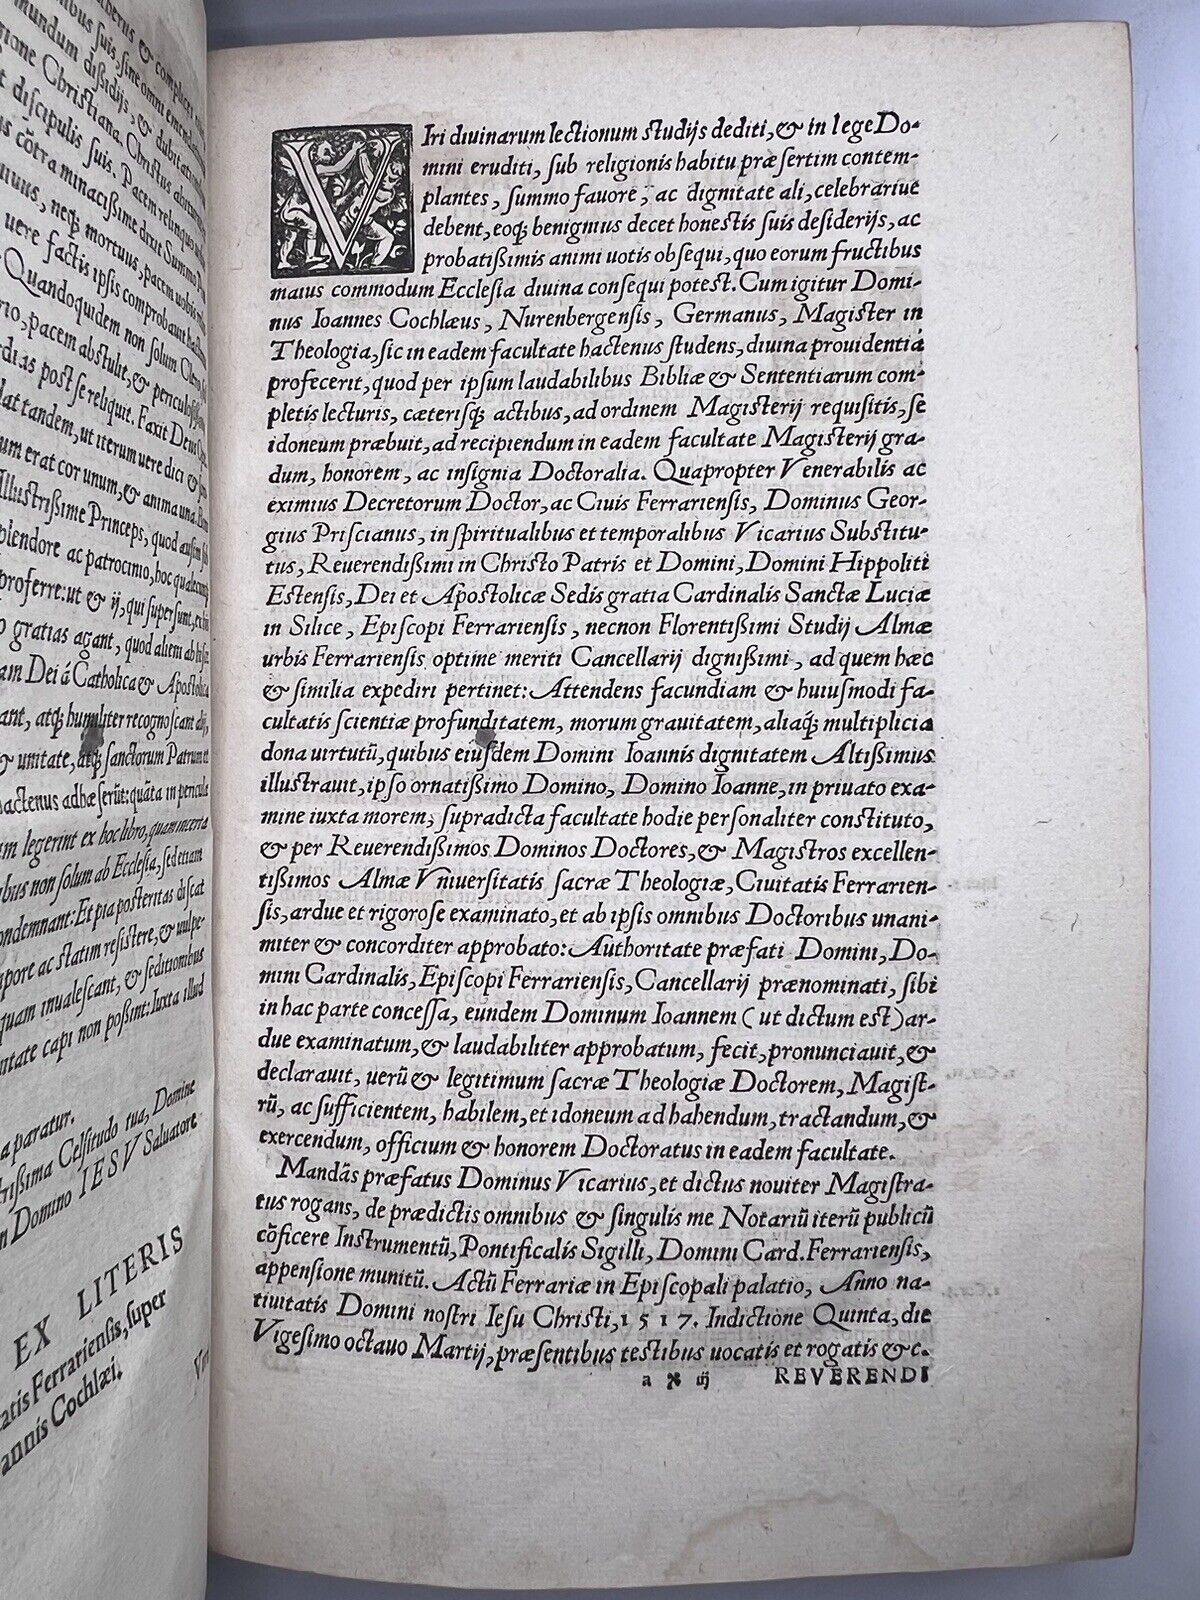 mundum dißidijs, & dubitatio
gione Christiana. Christus
t discipulis suis. Pacem relinquo
cõtra minacissime dixit Summo
nuus, neq; mortuus, pacem uobis
uere factis ipsis comprobauit
Quandoquidem non solum Clero
rio, pacem abstulit, & periculosissimam
rdias post se reliquit. Faxit Deus
lat tandem, ut iterum uere dici
um erat cor unum, & anima una.
Illustrißime Princeps, quod ausim
plendore ac patrocinio, hoc qualecunq;
proferre: ut & ij, qui supersunt, ex
o gratias agant, quod aliem ab
am Dei á Catholica & Apostolica
ant, atq; humiliter recognoscant alij,
& unitate, atq; sanctorum Patrum et
hactenus adhæserũt: quãta in pericula
um legerint ex hoc libro, quam incerta
ibus non solum ab Ecclesia, sed etiam
ondemnant: Et pia posteritas discat
mpore ac statim resistere, & uulpe-
quam inualescant, & seditionibus
ntate capi non poßint: Iuxta illud
a paratur.
trißima Celsitudo tua, Domine
n Domino IESV Saluatore
EX LITERIS
tatis Ferrariensis, super
annis Cochlæi.
VIri diuinarum lectionum studijs dediti, & in lege Do-
mini eruditi, sub religionis habitu præsertim contem-
plantes, summo fauore, ac dignitate ali, celebrariue
debent, eoq; benignius decet honestis suis desiderijs, ac
probatißimis animi uotis obsequi, quo eorum fructibus
maius commodum Ecclesia diuina consequi potest. Cum igitur Domi-
nus Ioannes Cochlæus, Nurenbergensis, Germanus, Magister in
Theologia, sic in eadem facultate hactenus studens, diuina prouidentia
profecerit, quod per ipsum laudabilibus Bibliæ & Sententiarum com-
pletis lecturis, cæterisq; actibus, ad ordinem Magisterij requisitis, se
idoneum præbuit, ad recipiendum in eadem facultate Magisterij gra-
dum, honorem, ac insignia Doctoralia. Quapropter Venerabilis ac
eximius Decretorum Doctor, ac Ciuis Ferrariensis, Dominus Geor-
gius Priscianus, in spiritualibus et temporalibus Vicarius Substitu-
tus, Reuerendißimi in Christo Patris et Domini, Domini Hippoliti
Estensis, Dei et Apostolicæ Sedis gratia Cardinalis Sanctæ Luciæ
in Silice, Episcopi Ferrariensis, necnon Florentißimi Studij Almæ
urbis Ferrariensis optime meriti Cancellarij dignißimi, ad quem hæc
& similia expediri pertinet: Attendens facundiam & huiusmodi fa-
cultatis scientiæ profunditatem, morum grauitatem, aliaq; multiplicia
dona uirtutũ, quibus eiusdem Domini Ioannis dignitatem Altißimus
illustrauit, ipso ornatißimo Domino, Domino Ioanne, in priuato exa-
mine iuxta morem, supradicta facultate hodie personaliter constituto,
& per Reuerendißimos Dominos Doctores, & Magistros excellen-
tißimos Almæ Vniuersitatis sacræ Theologiæ, Ciuitatis Ferrarien-
sis, ardue et rigorose examinato, et ab ipsis omnibus Doctoribus unani-
miter & concorditer approbato: Authoritate præfati Domini, Do-
mini Cardinalis, Episcopi Ferrariensis, Cancellarij prænominati, sibi
in hac parte concessa, eundem Dominum Ioannem (ut dictum est) ar-
due examinatum, & laudabiliter approbatum, fecit, pronunciauit, &
declarauit, uerũ & legitimum sacræ Theologiæ Doctorem, Magist-
rũ, ac sufficientem, habilem, et idoneum ad habendum, tractandum, &
exercendum, officium & honorem Doctoratus in eadem facultate.
Mandãs præfatus Dominus Vicarius, et dictus nouiter Magistra-
tus rogans, de prædictis omnibus & singulis me Notariũ iterũ publicũ
cõficere Instrumentũ, Pontificalis Sigilli, Domini Card. Ferrariensis,
appensione munitũ. Actũ Ferrariæ in Episcopali palatio, Anno na-
tiuitatis Domini nostri Iesu Christi, 1517. Indictione Quinta, die
Vigesimo octauo Martij, præsentibus testibus uocatis et rogatis &c.
a ✠ iij REVERENDI